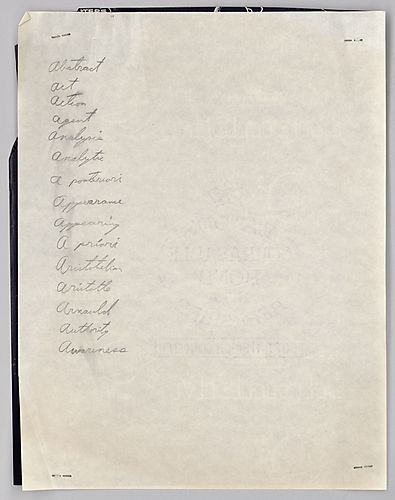 Abstract
Act
Action
Agent
Analysis
Analytic
A posteriori
Appearance
Appearing
A priori
Aristotelian
Aristotle
Arnauld
Authority
Awareness